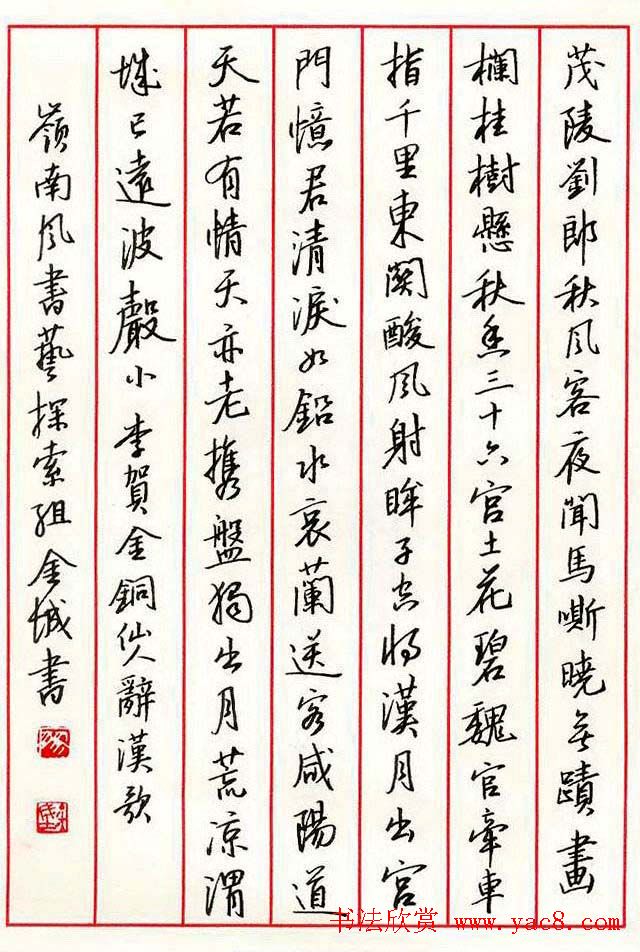 茂陵劉郎秋風客夜聞馬嘶曉無蹟畫
欄桂樹懸秋香三十六宮土花碧魏官牽車
指千里東關酸風射眸子空將漢月出宮
門憶君清淚如鉛水衰蘭送客咸陽道
天若有情天亦老攜盤獨出月荒涼渭
城已遠波聲小 李賀金銅仙人辭漢歌
嶺南風書藝探索組金城書
书法欣赏 www.yac8.com